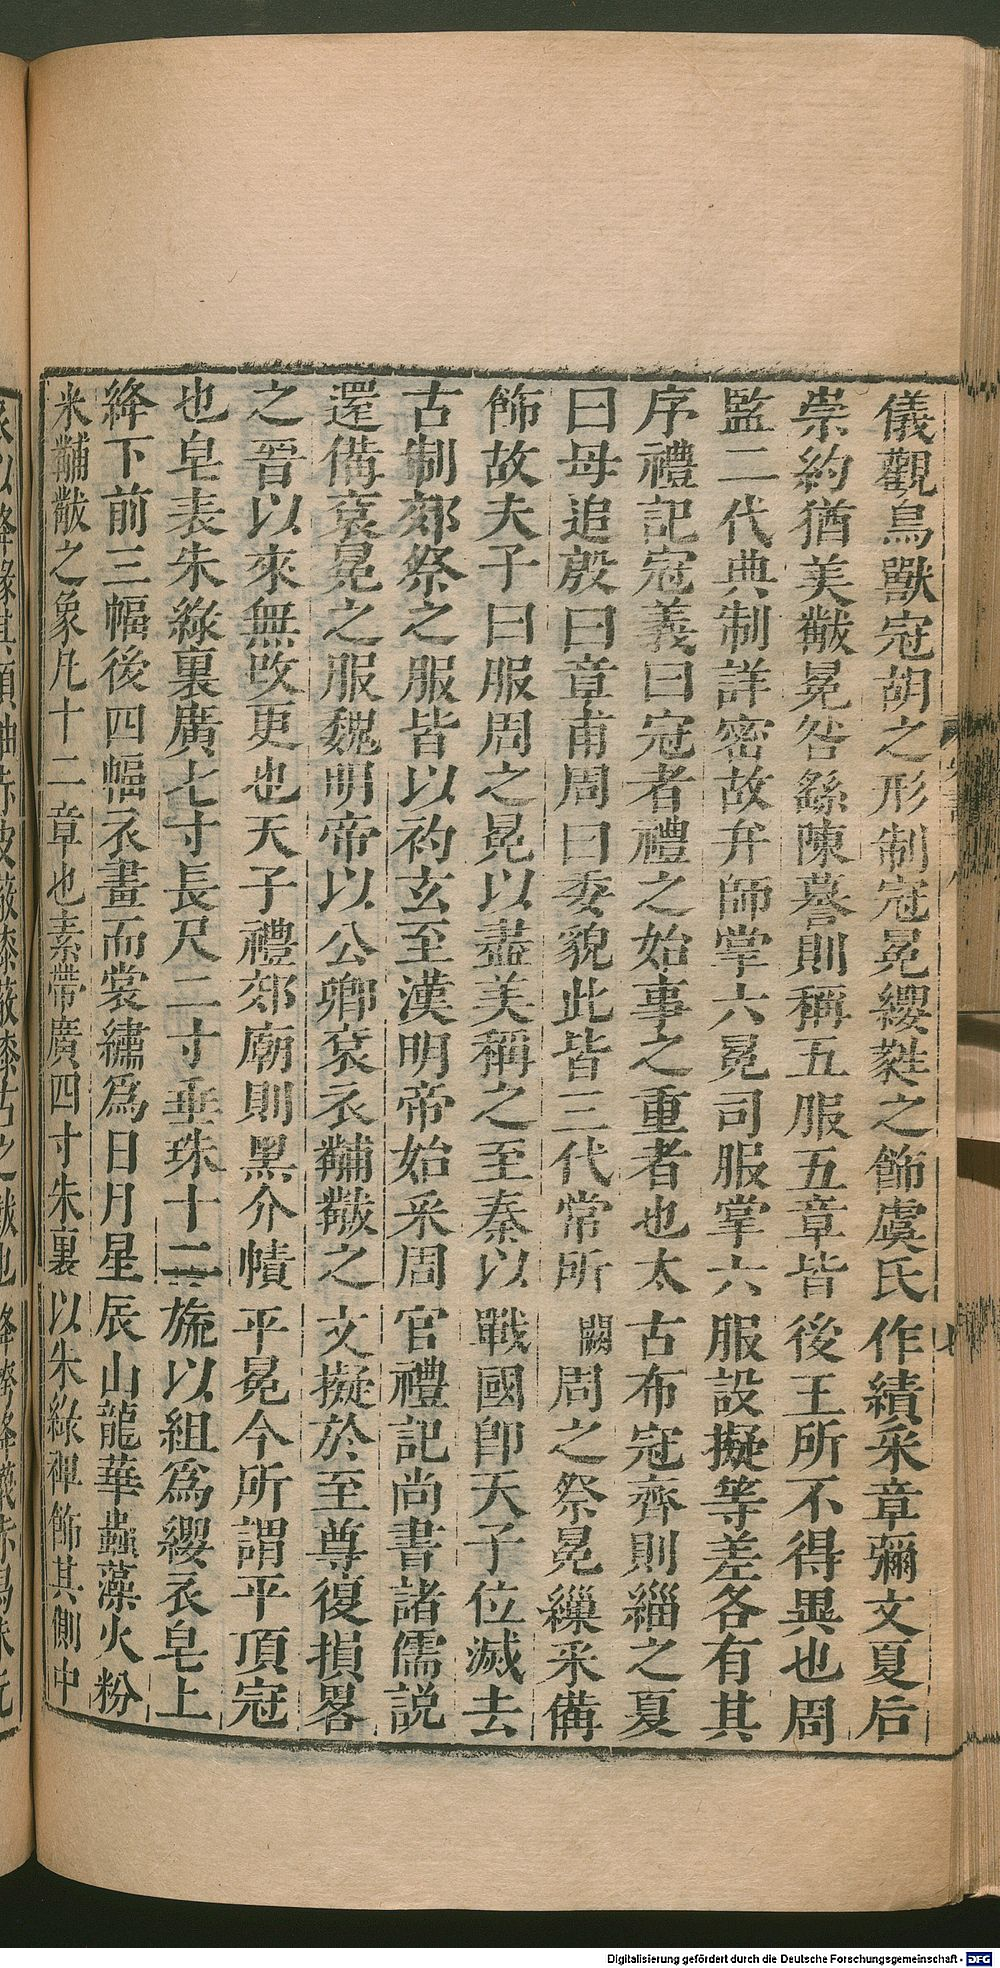 儀觀鳥獸冠胡之形制冠冕纓蕤之飾虞氏作績采章彌文夏后
崇約猶美黻冕咎繇陳謩則稱五服五章皆後王所不得異也周
監二代典制詳密故弁師掌六冕司服掌六服設擬等差各有其
序禮記冠義曰冠者禮之始事之重者也太古布冠齊則緇之夏
曰毋追殷曰章甫周曰委貌此皆三代常所闕周之祭冕繅采備
飾故夫子曰服周之冕以盡美稱之至秦以戰國卽天子位滅去
古制郊祭之服皆以袀玄至漢明帝始采周官禮記尚書諸儒説
還備袞冕之服魏明帝以公卿袞衣黼黻之文擬於至尊復損畧
之晉以來無改更也天子禮郊廟則黑介幘平冕今所謂平頂冠
也皂表朱綠裏廣七寸長尺二寸垂珠十二旒以組爲纓衣皂上
絳下前三幅後四幅衣畫而裳繡爲日月星辰山龍華蟲藻火粉
米黼黻之象凡十二章也素帶廣四寸朱裏以朱綠裨飾其側中
Digitalisierung gefördert durch die Deutsche Forschungsgemeinschaft - DFG